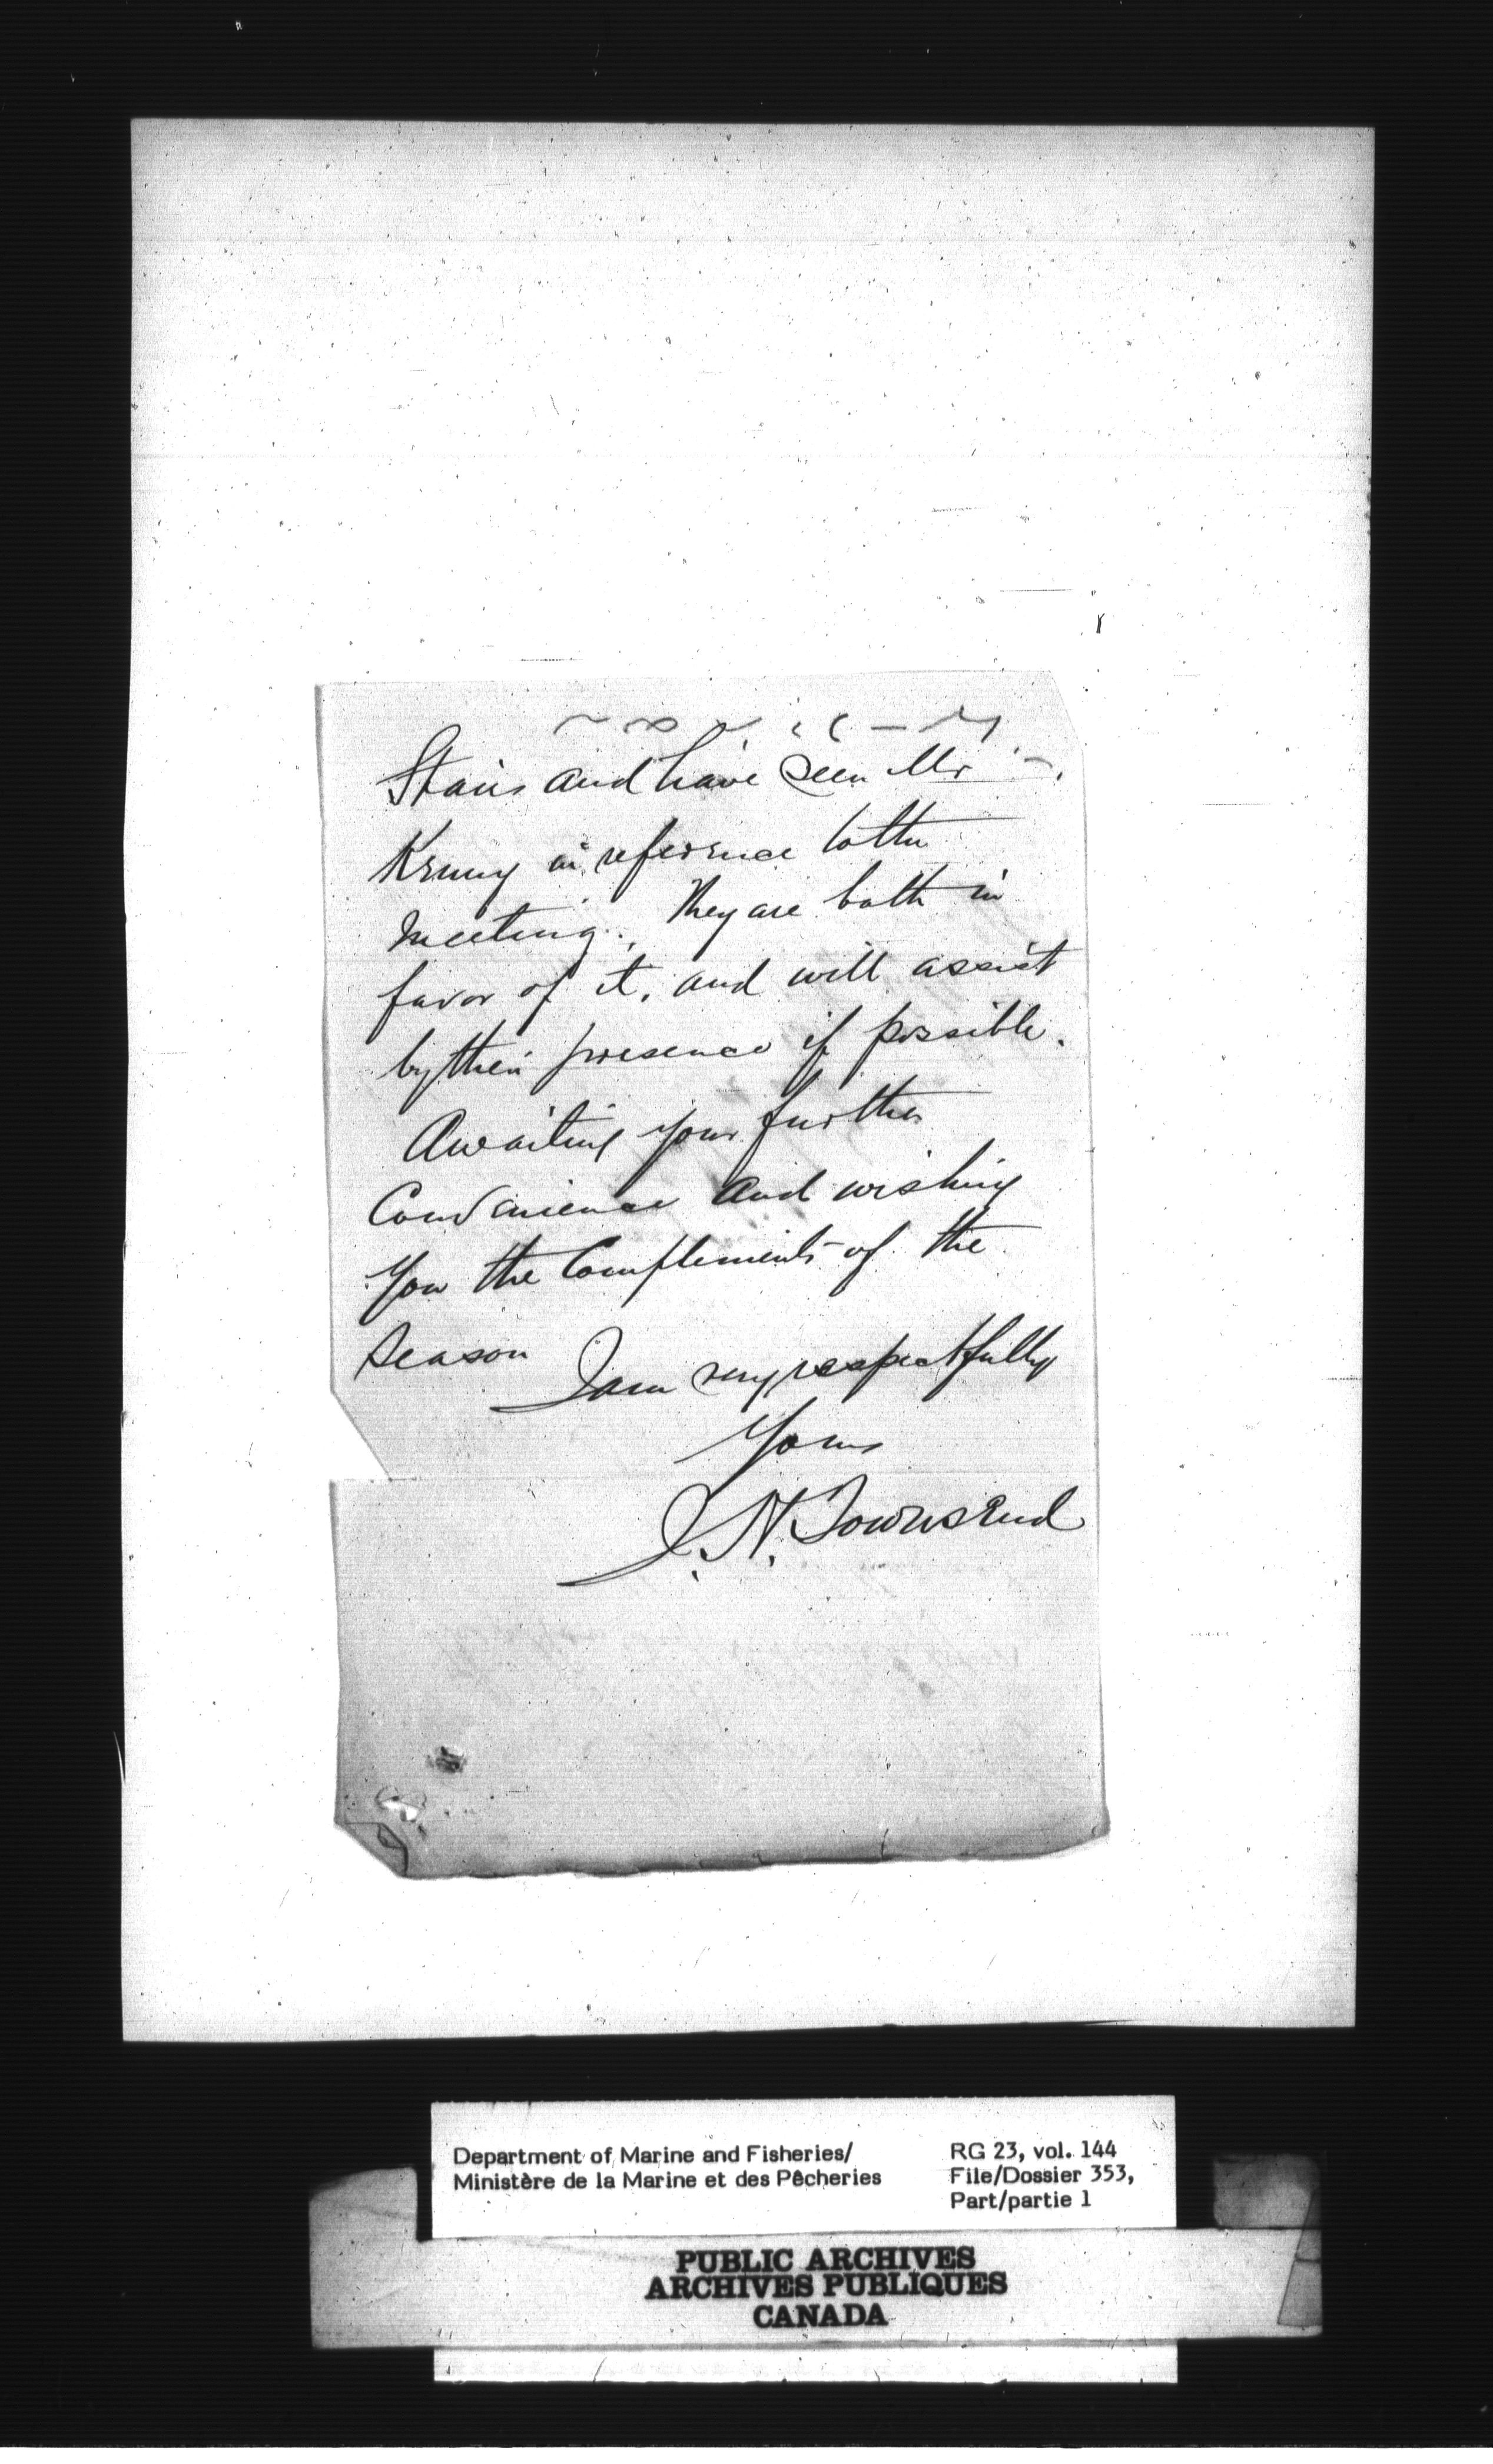 Stairs and have seen Mr
Kenny in reference to the
meeting. They are both in
favor of it, and will assist
by their presence if possible.
Awaiting your further
Convenience and wishing
you the Complements of the
Season
I am very respectfully
Yours
J. N. Townsend
Department of Marine and Fisheries/
Ministère de la Marine et des Pêcheries
RG 23, vol. 144
File/Dossier 353,
Part/partie 1
PUBLIC ARCHIVES
ARCHIVES PUBLIQUES
CANADA